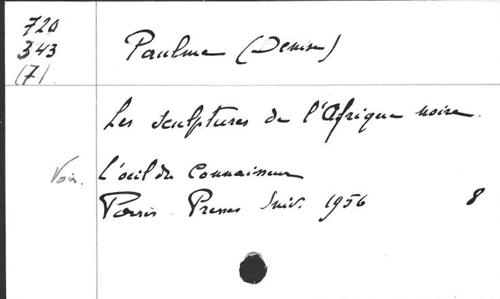 720
343
(7)
Paulme (Denise)
Les sculptures de l'Afrique noire.
Voir. L'oeil du Connaisseur
Paris Presses Univ. 1956 8